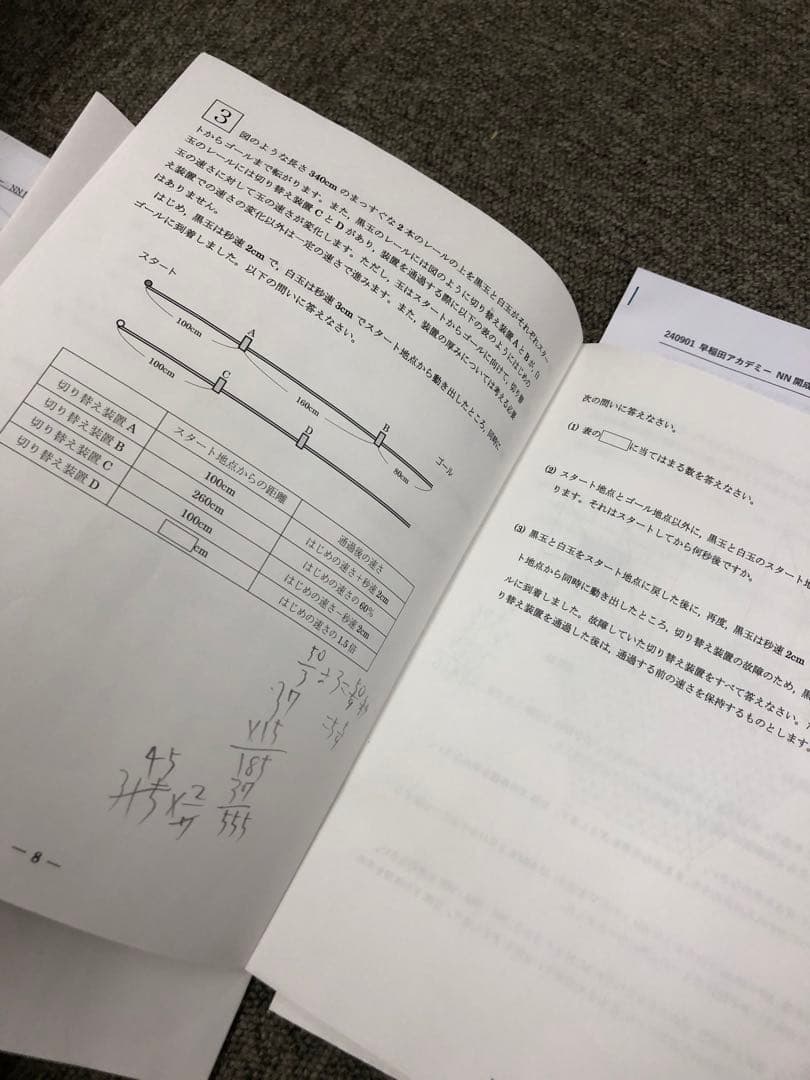 3
図のような長さ 340cm のまっすぐな 2 本のレールの上を黒玉と白玉がそれぞれスター
トからゴールまで転がります。また，黒玉のレールには図のように切り替え装置 A と B が，白
玉のレールには切り替え装置 C と D があり，装置を通過する際に以下の表のようにはじめの
玉の速さに対して玉の速さが変化します。ただし，玉はスタートからゴールに向けて，切り替
え装置での速さの変化以外は一定の速さで進みます。また，装置の厚みについては考える必要
はありません。
はじめ，黒玉は秒速 2cm で，白玉は秒速 3cm でスタート地点から動き出したところ，同時に
ゴールに到着しました。以下の問いに答えなさい。
スタート
100cm
A
160cm
B
80cm
ゴール
100cm
C
D
スタート地点からの距離
通過後の速さ
切り替え装置 A
100cm
はじめの速さ＋秒速 2cm
切り替え装置 B
260cm
はじめの速さの 60%
切り替え装置 C
100cm
はじめの速さ－秒速 2cm
切り替え装置 D
cm
はじめの速さの 1.5 倍
50
3
37
×15
185
37
555
45
― 8 ―
240901 早稲田アカデミー NN 開成
次の問いに答えなさい。
(1) 表の□に当てはまる数を答えなさい。
(2) スタート地点とゴール地点以外に，黒玉と白玉のスタート地
ります。それはスタートしてから何秒後ですか。
(3) 黒玉と白玉をスタート地点に戻した後に，再度，黒玉は秒速 2cm
ト地点から同時に動き出したところ，切り替え装置の故障のため，黒
ルに到着しました。故障していた切り替え装置をすべて答えなさい。
り替え装置を通過した後は，通過する前の速さを保持するものとします。